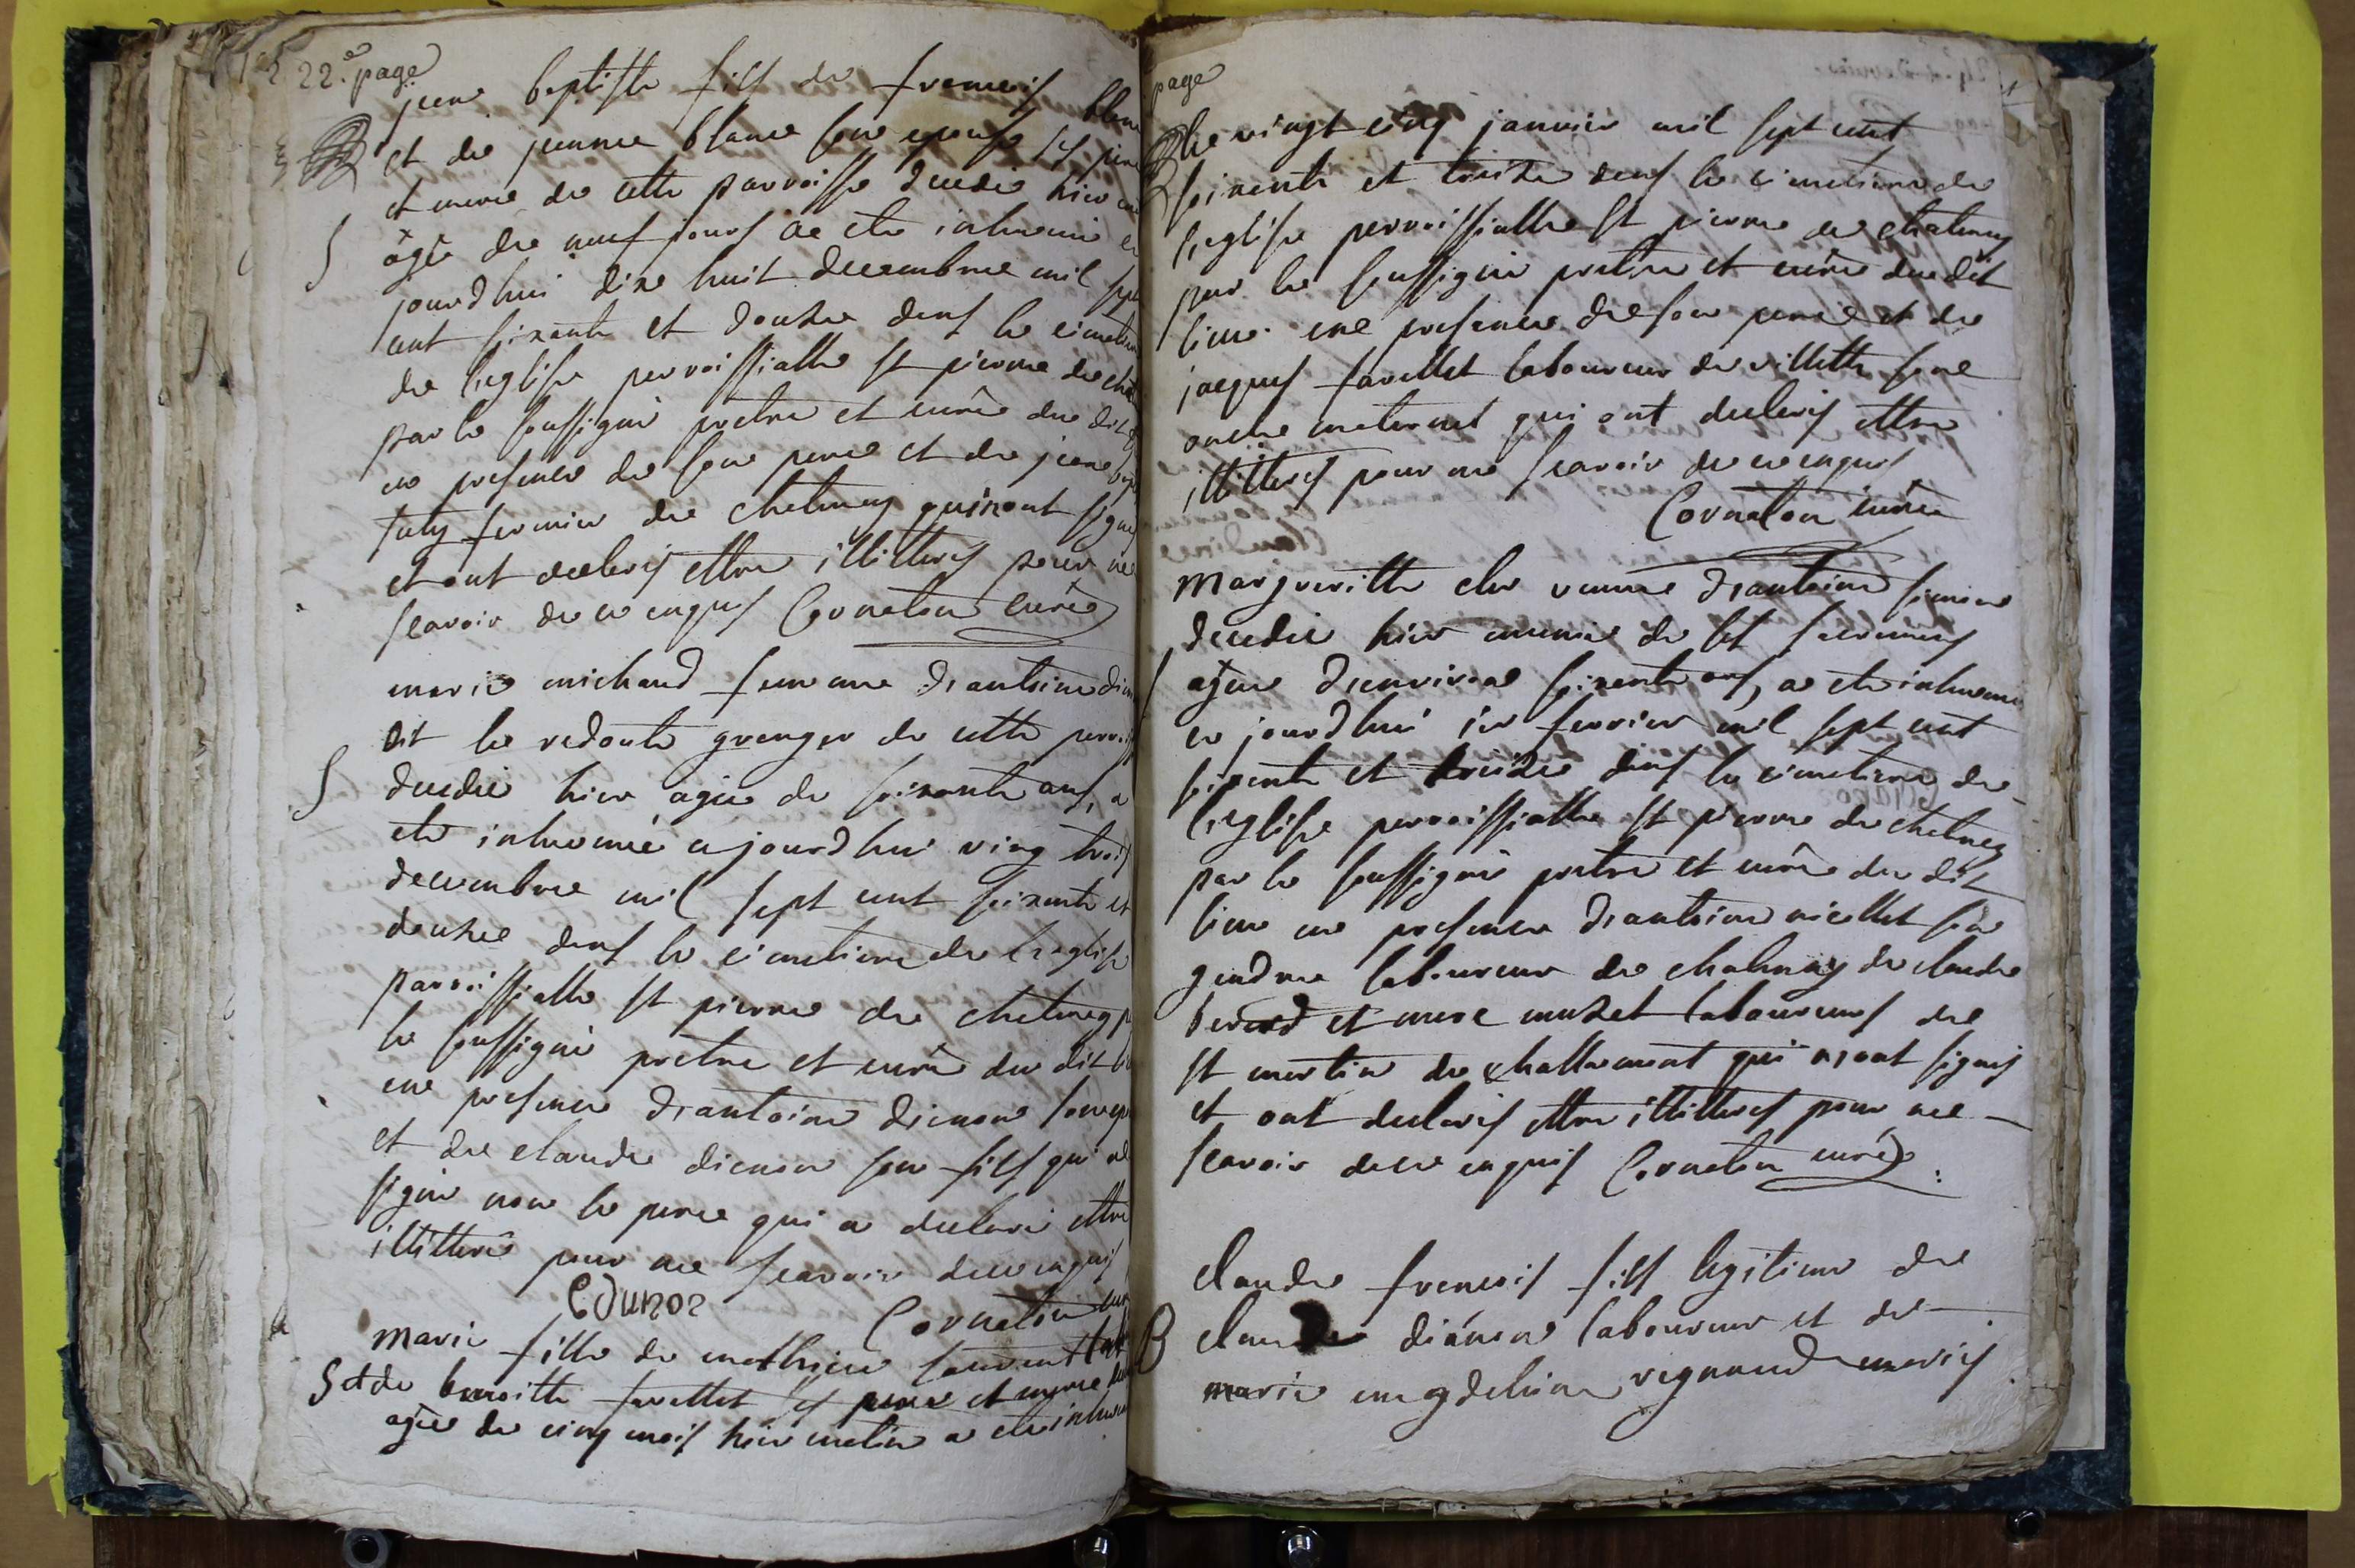 22.e page
jean baptiste fils de francois blanc
et de jeanne blanc son epouse ses pere
et mere de cette parroisse decede hier
âgé de neuf jours a ete inhumé ce
jourdhui dixe huit decembre mil sept
cent soixante et douze dans le cimetiere
de l'eglise parroissialle st pierre de
par le soussigné pretre et curé du dit
en presence de son pere et de jean
fermier de chalamey qui n'ont signé
et ont declarés ettre illitterés pour ne
scavoir de ce enquis Cornaton curé
marie michaud femme d'antoine
dit la redoute granger de cette parroisse
decedée hier agée de soixante ans, a
ete inhumée cejourdhui ving trois
decembre mil sept cent soixante et
douze dans le cimetiere de l'eglise
parroissialle st pierre de chalamey
le soussigné pretre et curé du dit
en presence d'antoine dienon son
et de claude dienon son fils qui a
signé non le pere qui a declaré ettre
illitteré pour ne scavoir de ce enquis
Cornaton
marie fille de mathieu
S et de benoitte favellet ses pere et mere
agée de cinq mois hier matin a ete inhumée
page
le vingt cinq janvier mil sept cent
soixante et treize dans le cimetiere de
l'eglise parroissialle st pierre de chalamey
par le soussigné pretre et curé du dit
lieu en presence de son pere et de
jacques favellet laboureur de villette son
oncle maternel qui ont declarés ettre
illitterés pour ne scavoir de ce enquis
Cornaton curé
Margueritte veuve d'antoine
decedée hier munie de ses sacremens
agée d'environ soixante ans, a ete inhumée
ce jourdhui fevrier mil sept cent
soixante et treize dans le cimetiere de
l'eglise parroissialle st pierre de chalamey
par le soussigné pretre et curé du dit
lieu en presence d'antoine nicollet son
gendre laboureur de chalamey de claude
berard et muzet laboureurs de
st martin de challamont qui n'ont signés
et ont declarés ettre illitterés pour ne
scavoir de ce enquis Cornaton curé
claude francois fils legitime de
B claude diénon laboureur et de
marie magdelaine regnaud mariés